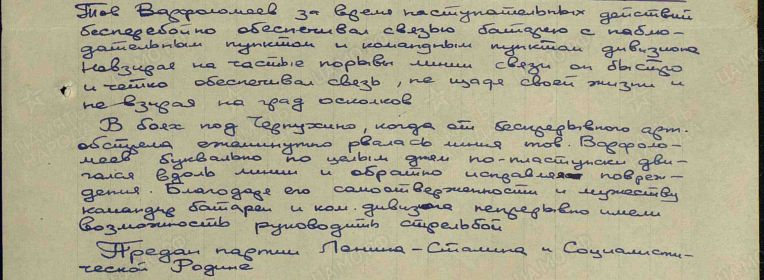 Тов Варфоломеев за время наступательных действий
бесперебойно обеспечивал связью батарею с наблю-
дательным пунктом и командным пунктом дивизиона
Невзирая на частые порывы линии связи он быстро
и четко обеспечивал связь, не щадя своей жизни и
не взирая на град осколков
В боях под Чернухино, когда от беспрерывного арт.
обстрела ежеминутно рвалась линия тов. Варфоло-
меев буквально по целым дням по-пластунски дви-
гался вдоль линии и обратно исправляя повреж-
дения. Благодаря его самоотверженности и мужеству
командир батареи и ком. дивизиона непрерывно имели
возможность руководить стрельбой
Предан партии Ленина-Сталина и Социалисти-
ческой Родине